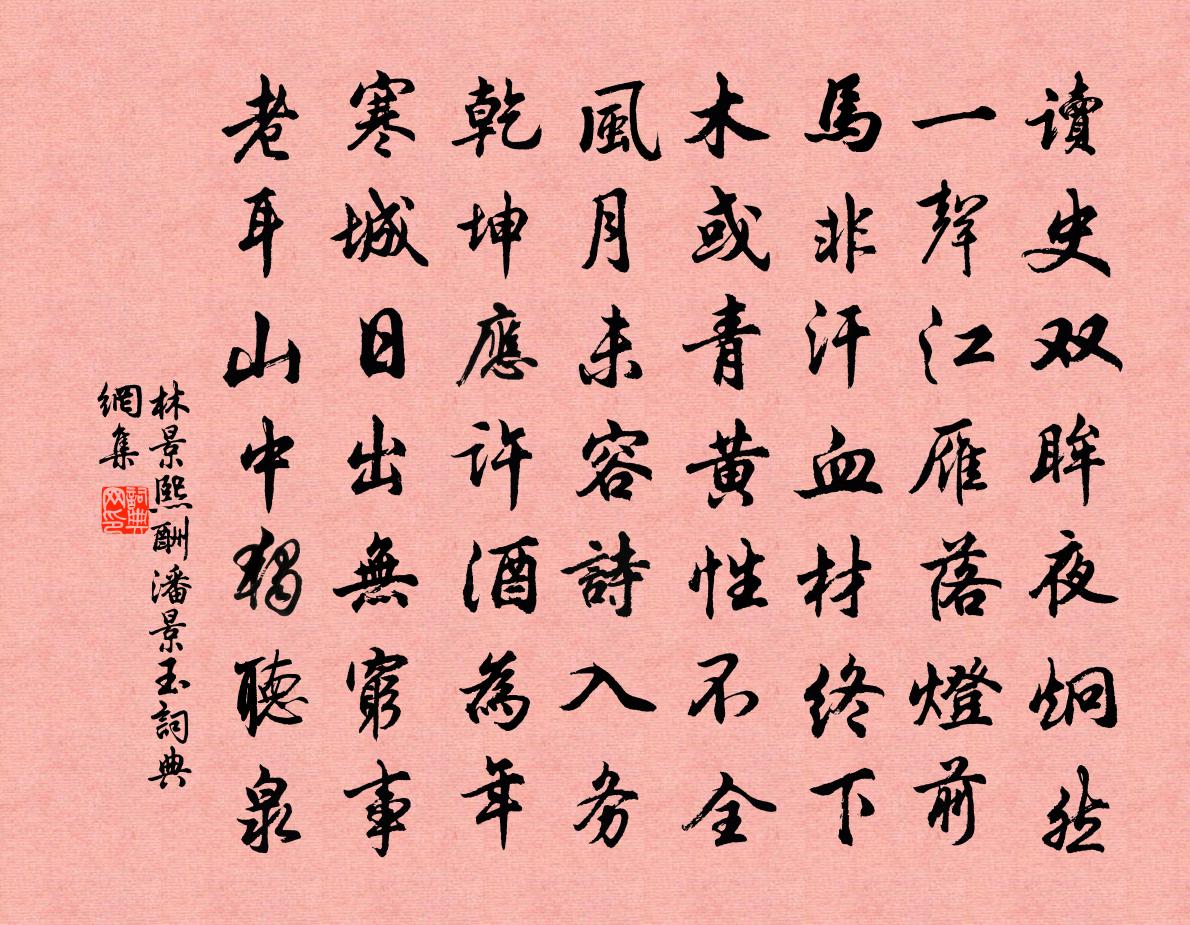 讀史双眸夜炯然
一聲江雁落燈前
馬非汗血材終下
木或青黃性不全
風月未容詩入务
乾坤應許酒為年
寒城日出無窮事
老耳山中獨聽泉
林景熙酬潘景玉詞典
網集
詞典
网印